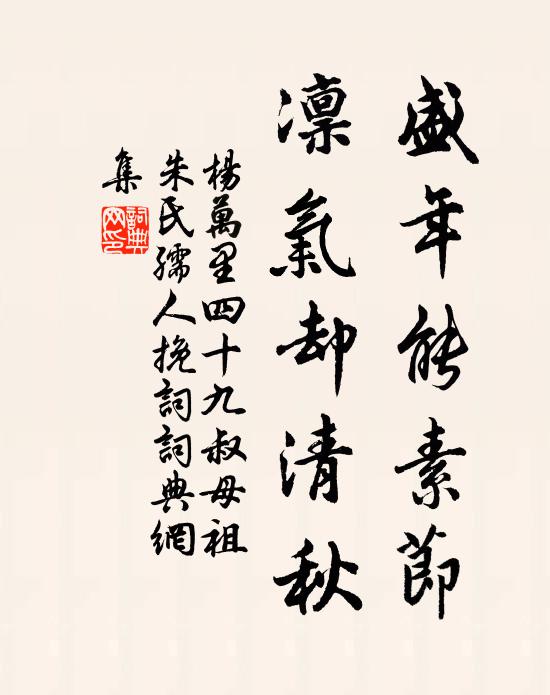 盛年能素節
凜氣却清秋
楊萬里四十九叔母祖
朱氏孺人挽詞詞典網
集
詞典網印